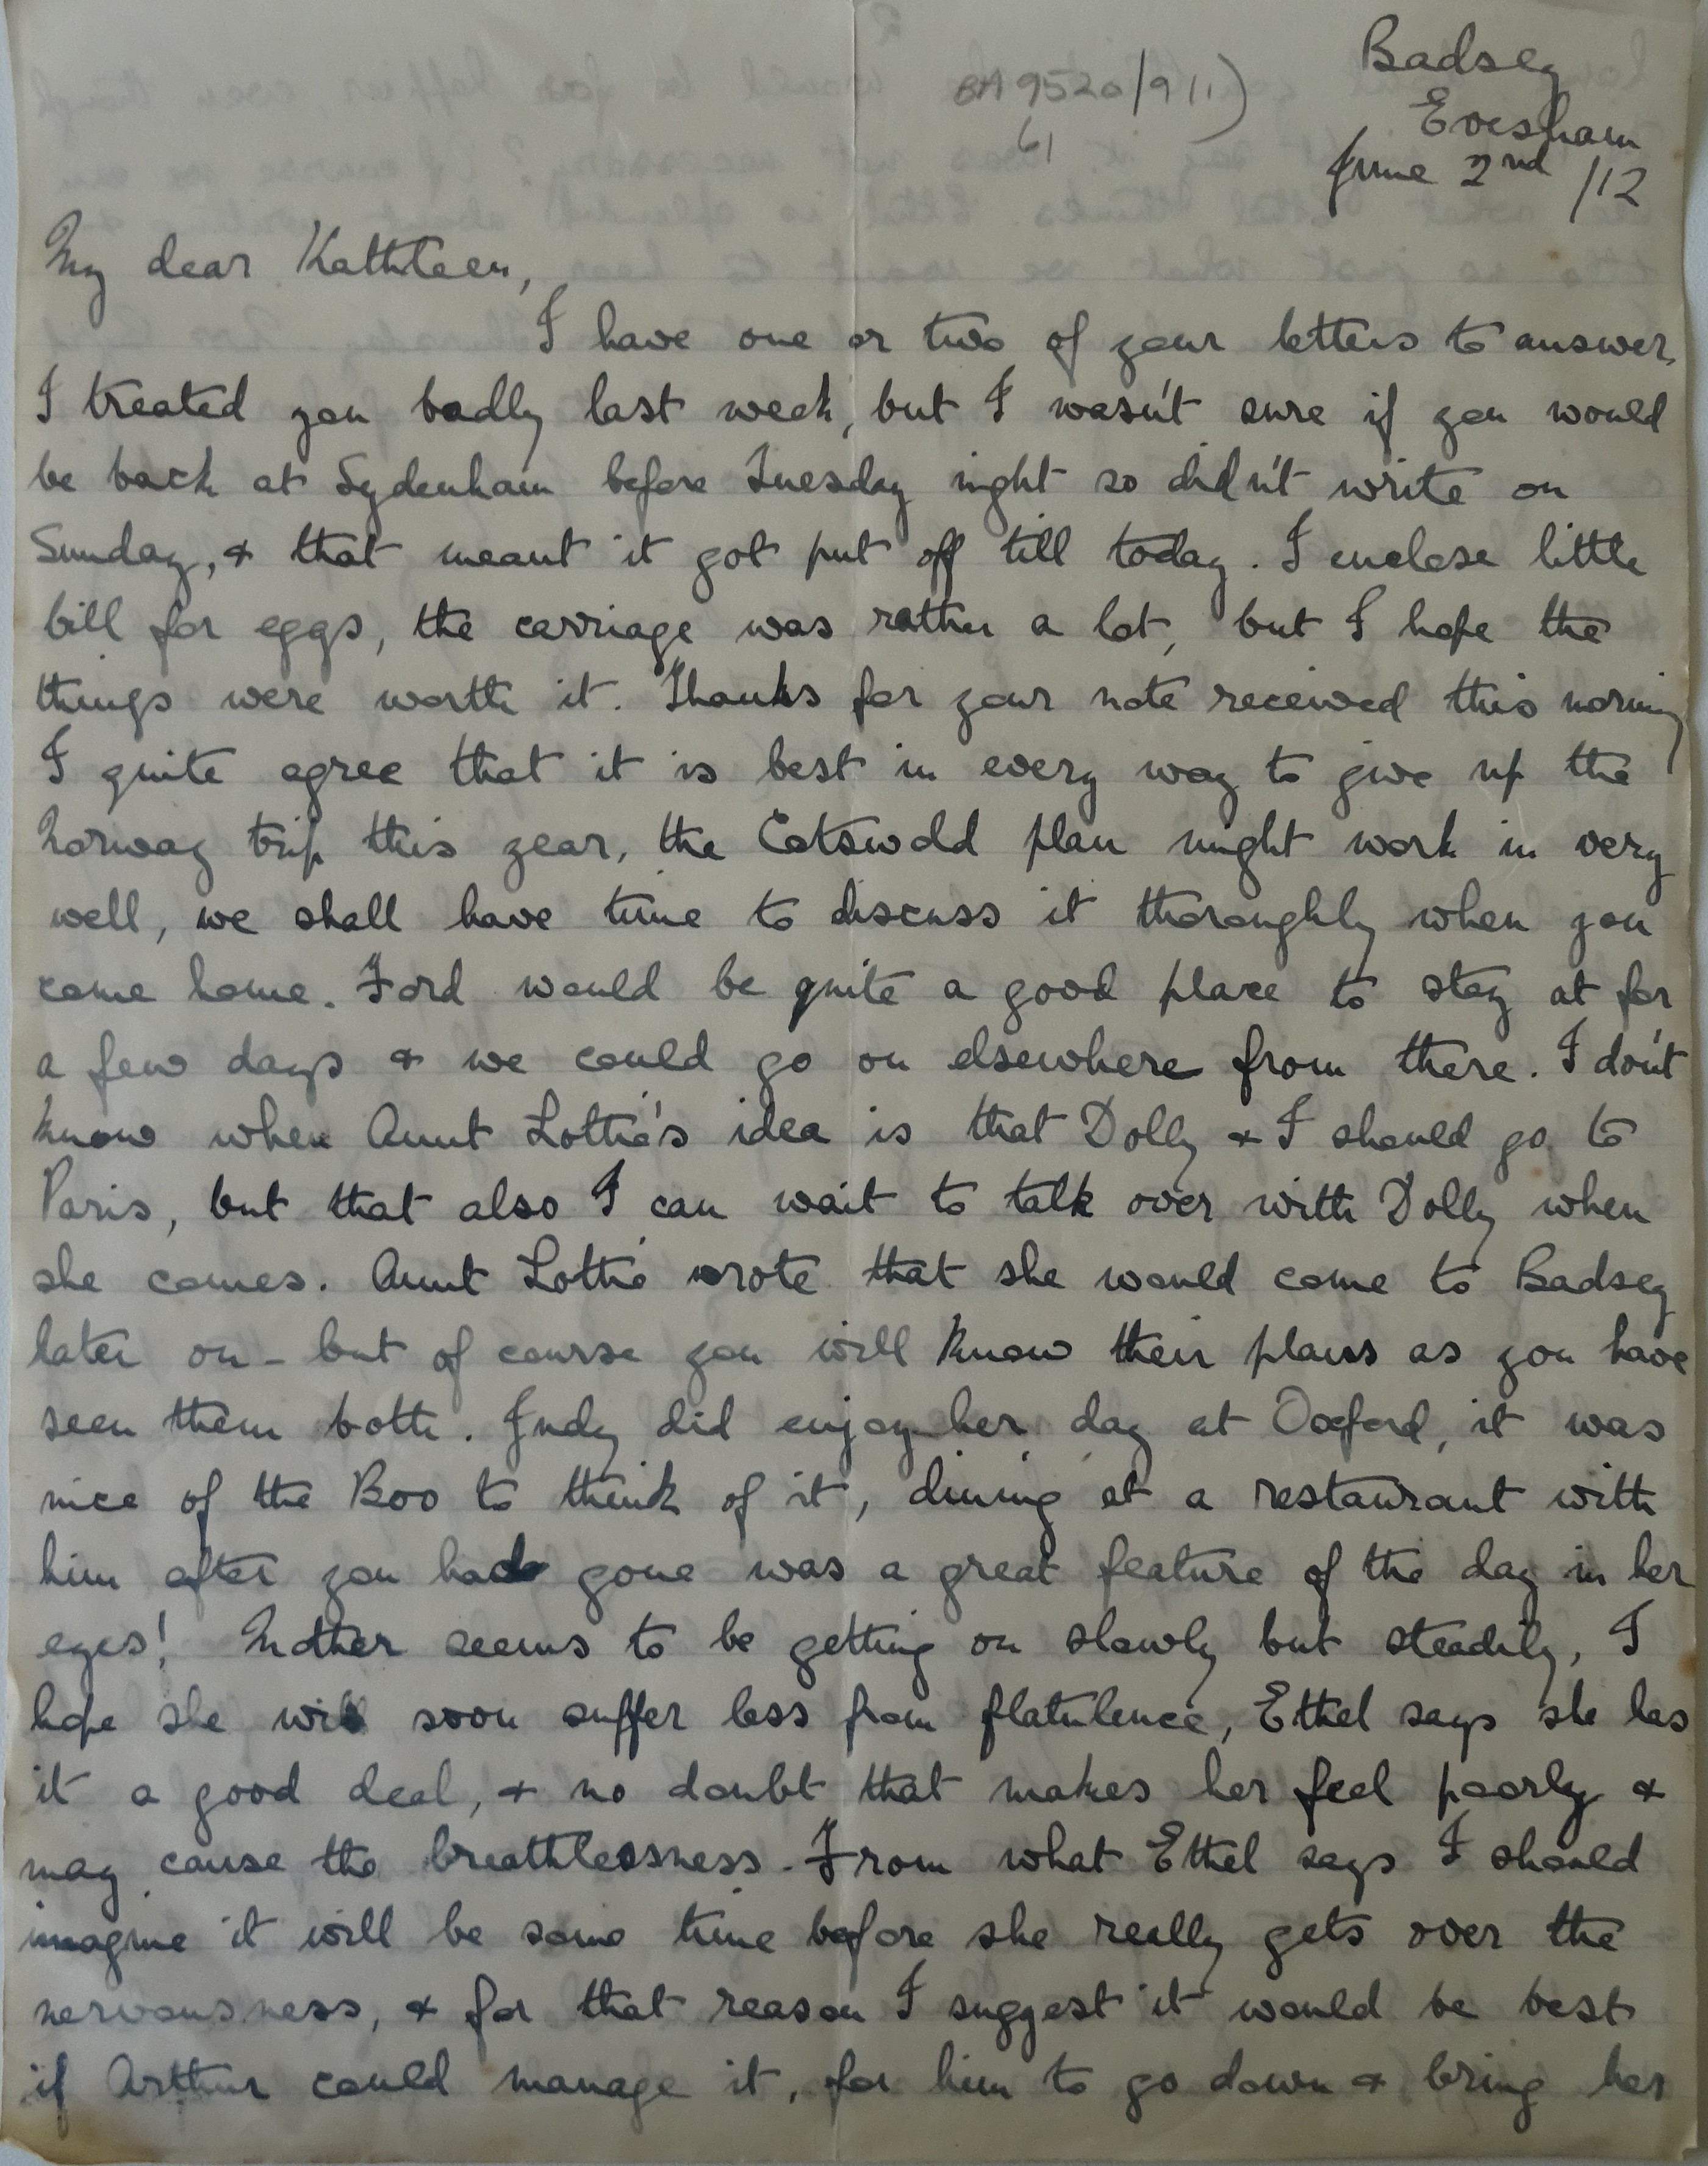 BA 9520/9(1)
61
Badsey
Evesham
June 2nd /12
My dear Kathleen,
I have one or two of your letters to answer,
I treated you badly last week, but I wasn't sure if you would
be back at Sydenham before Tuesday night so didn't write on
Sunday, & that meant it got put off till today. I enclose little
bill for eggs, the carriage was rather a lot, but I hope the
things were worth it. Thanks for your note received this morning
I quite agree that it is best in every way to give up the
Norway trip this year, the Cotswold plan might work in very
well, we shall have time to discuss it thoroughly when you
come home. Ford would be quite a good place to stay at for
a few days & we could go on elsewhere from there. I don't
know when Aunt Lottie's idea is that Dolly & I should go to
Paris, but that also I can wait to talk over with Dolly when
she comes. Aunt Lottie wrote that she would come to Badsey
later on - but of course you will know their plans as you have
seen them both. Judy did enjoy her day at Oxford, it was
nice of the Boo to think of it, dining at a restaurant with
him after you had gone was a great feature of the day in her
eyes! Mother seems to be getting on slowly but steadily, I
hope she will soon suffer less from flatulence, Ethel says she has
it a good deal, & no doubt that makes her feel poorly &
may cause the breathlessness. From what Ethel says I should
imagine it will be some time before she really gets over the
nervousness, & for that reason I suggest it would be best
if Arthur could manage it, for him to go down & bring her